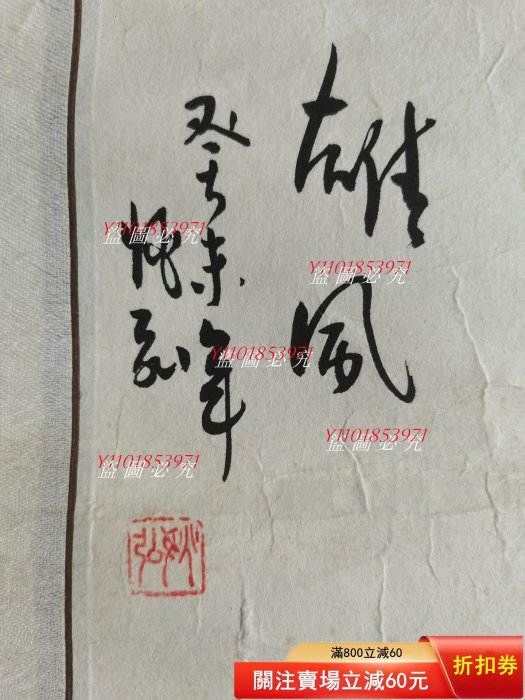 雄風
癸未年
Y1101853971
盜圖必究
Y1101853971
盜圖必究
Y1101853971
盜圖必究
Y1101853971
盜圖必究
Y1101853971
盜圖必究
滿800立減60
關注賣場立減60元
折扣券